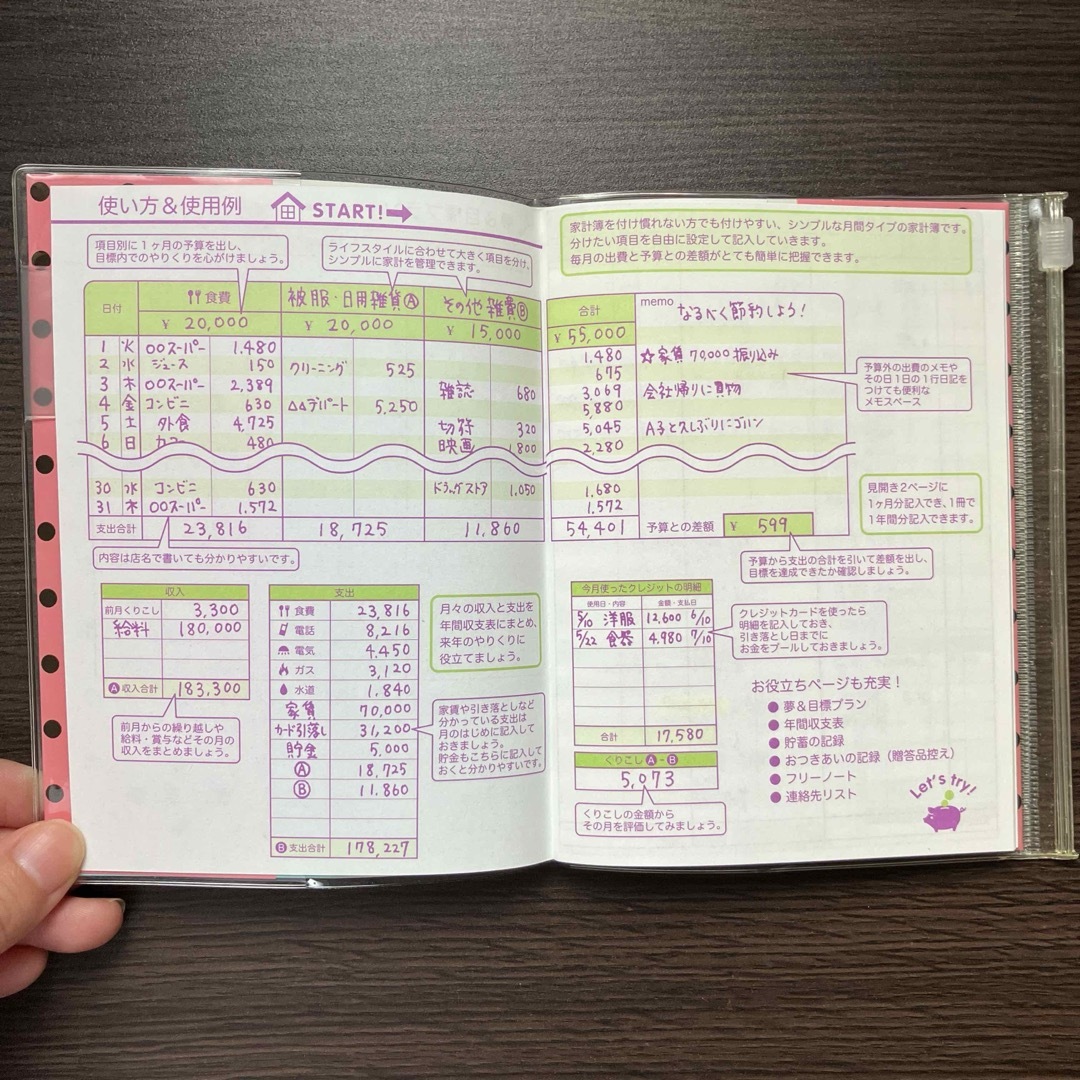 使い方＆使用例 START!
項目別に1ヶ月の予算を出し、
目標内でのやりくりを心がけましょう。
ライフスタイルに合わせて大きく項目を分け、
シンプルに家計を管理できます。
家計簿を付け慣れない方でも付けやすい、シンプルな月間タイプの家計簿です。
分けたい項目を自由に設定して記入していきます。
毎月の出費と予算との差額がとても簡単に把握できます。
日付 食費 被服・日用雑貨Ⓐ その他 雑費Ⓑ 合計 memo なるべく節約しよう!
¥ 20,000 ¥ 20,000 ¥ 15,000 ¥ 55,000
1 火 〇〇スーパー 1.480 1.480 ☆家賃 70,000 振り込み
2 水 ジュース 150 クリーニング 525 675
3 木 〇〇スーパー 2,389 雑誌 680 3,069 会社帰りに買物
4 金 コンビニ 630 △△デパート 5,250 5,880
5 土 外食 4,725 切符 320 5,045 A子と久しぶりにゴハン
6 日 480 映画 1,800 2,280
予算外の出費のメモや
その日1日の1行日記を
つけても便利な
メモスペース
30 水 コンビニ 630 ドラッグストア 1,050 1,680
31 木 〇〇スーパー 1.572 1.572
支出合計 23,816 18,725 11.860 54,401 予算との差額 ¥ 599
見開き2ページに
1ヶ月分記入でき、1冊で
1年間分記入できます。
内容は店名で書いても分かりやすいです。
予算から支出の合計を引いて差額を出し、
目標を達成できたか確認しましょう。
収入
前月くりこし 3,300
給料 180,000
Ⓐ収入合計 183,300
前月からの繰り越しや
給料・賞与などその月の
収入をまとめましょう。
支出
食費 23,816
電話 8,216
電気 4,450
ガス 3,120
水道 1,840
家賃 70,000
カード引落し 31,200
貯金 5,000
Ⓐ 18,725
Ⓑ 11.860
Ⓑ支出合計 178,227
月々の収入と支出を
年間収支表にまとめ、
来年のやりくりに
役立てましょう。
家賃や引き落としなど
分かっている支出は
月のはじめに記入して
おきましょう。
貯金もこちらに記入して
おくと分かりやすいです。
今月使ったクレジットの明細
使用日・内容 金額・支払日
5/10 洋服 12,600 6/10
5/22 食器 4,980 7/10
合計 17,580
くりこしⒶ−Ⓑ
5,073
くりこしの金額から
その月を評価してみましょう。
クレジットカードを使ったら
明細を記入しておき、
引き落とし日までに
お金をプールしておきましょう。
お役立ちページも充実！
●夢＆目標プラン
●年間収支表
●貯蓄の記録
●おつきあいの記録（贈答品控え）
●フリーノート
●連絡先リスト
Let's try!